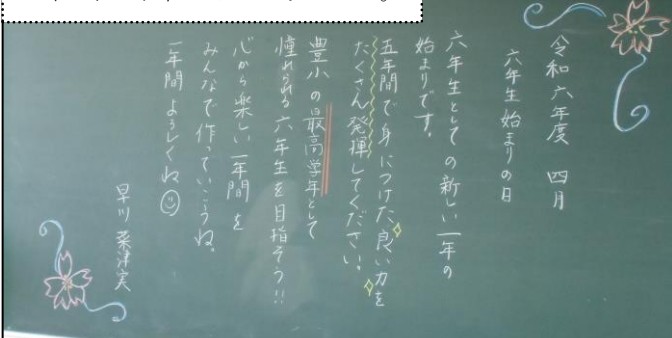 令和六年度 四月
六年生始まりの日
六年生としての新しい一年の
始まりです。
五年間で身につけた良い力を
たくさん発揮してください!
豊小の最高学年として
憧れられる六年生を目指そう!!
心から楽しい一年間を
みんなで作っていこうね。
一年間よろしくね
早川 菜津実